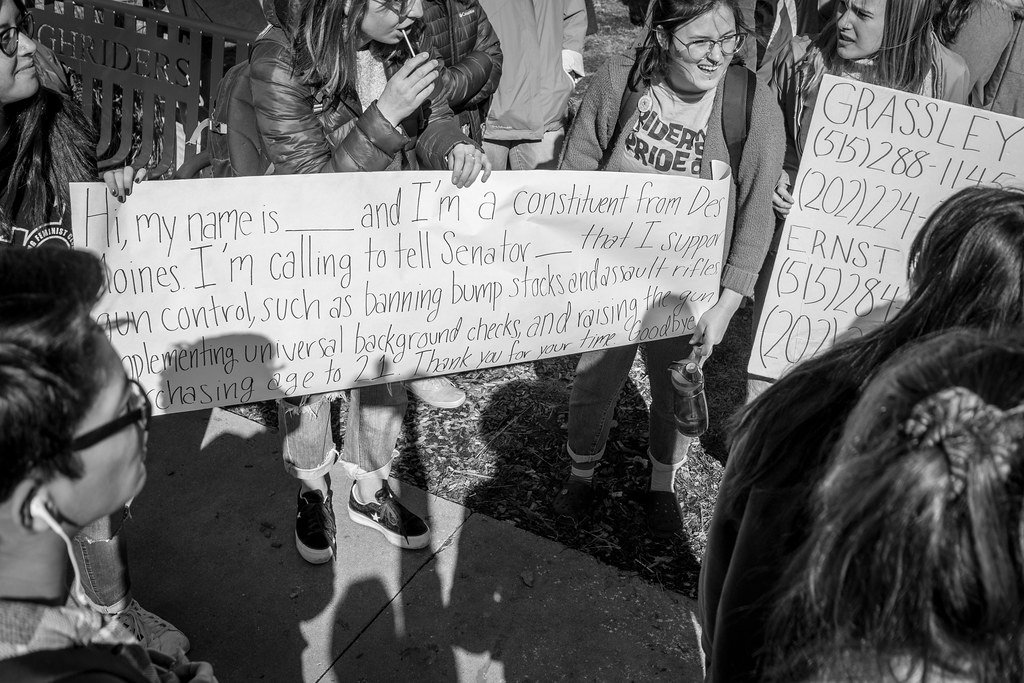 GHRIDERS
Hi, my name is ____ and I'm a constituent from Des
Moines. I'm calling to tell Senator __ that I suppor
gun control, such as banning bump stocks and assault rifles
mplementing universal background checks, and raising the gun
rchasing age to 21. Thank you for your time. Goodbye
RIDERS
PRIDE
GRASSLEY
(515)288-1145
(202)224-
ERNST
(515)284
(202)
FEMINIST